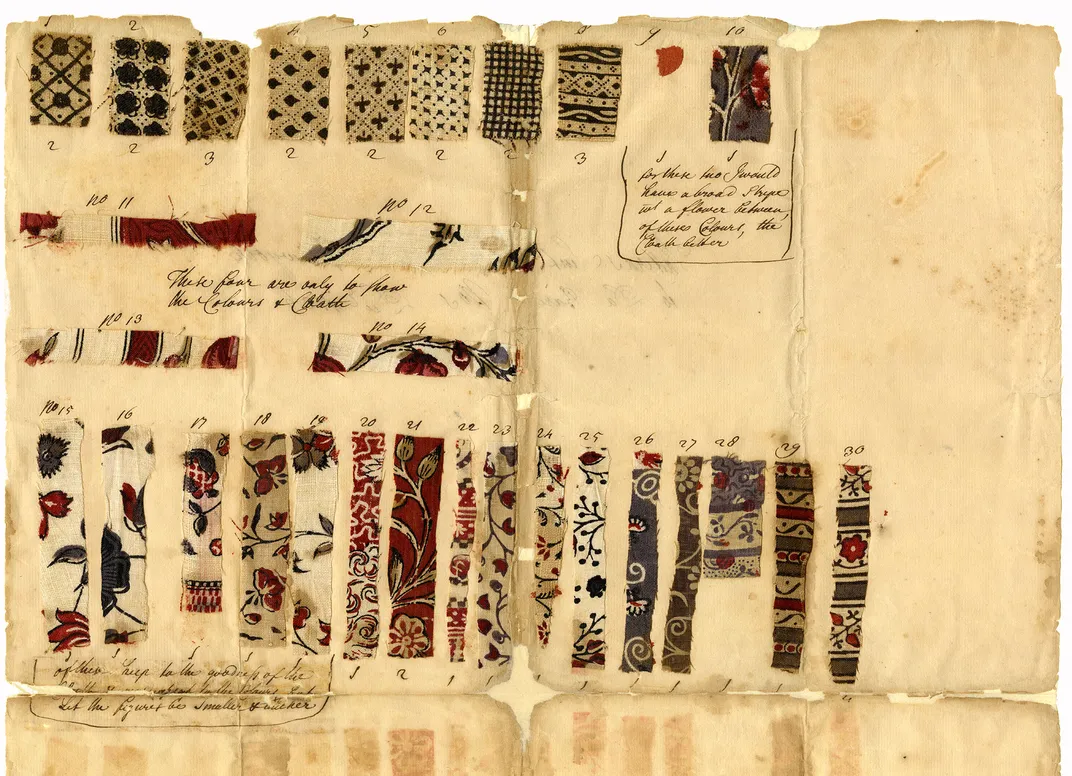 1 2 4 5 6 8 9 10
2 2 3 2 2 2 2 3
for these two I would
have a broad Stripe
wt a flower between,
of these Colours, the
Cloath better
no 11 no 12
These four are only to show
the Colours & Cloath
no 13 no 14
no 15 16 17 18 19 20 21 22 23 24 25 26 27 28 29 30
of these keep to the goodness of the
to the Colours but
Let the figures be smaller &
1 2 1 1 1 1 1 1 1